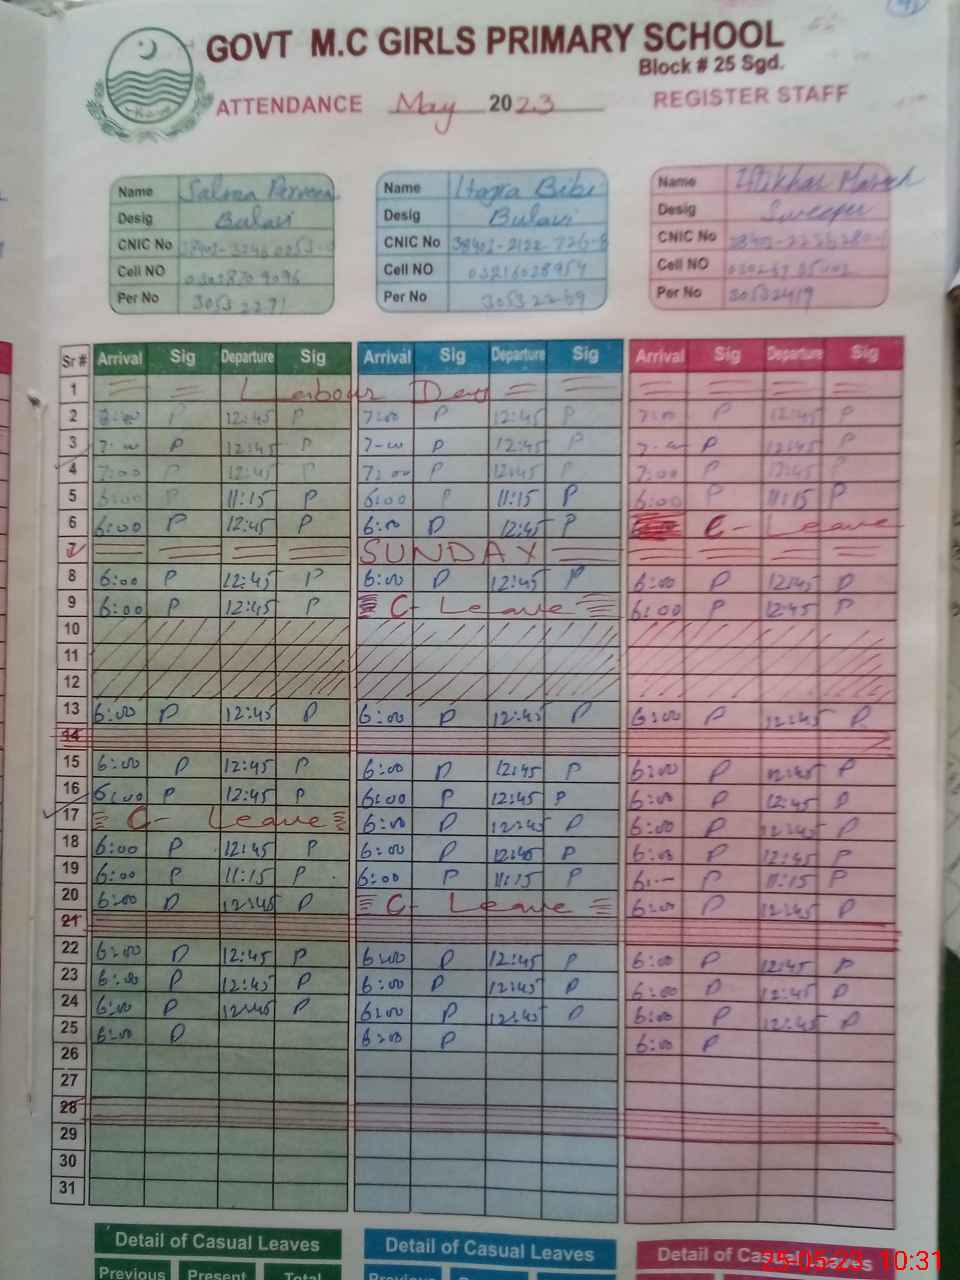 GOVT M.C GIRLS PRIMARY SCHOOL
Block # 25 Sgd.
ATTENDANCE May 2023 REGISTER STAFF
Name Salma Parveen Name Hajra Bibi Name Iftikhar Masih
Desig Bulavi Desig Bulavi Desig Sweeper
CNIC No CNIC No CNIC No
Cell NO Cell NO 03216028954 Cell NO
Per No 30532271 Per No 30532269 Per No 30532419
Sr # Arrival Sig Departure Sig Arrival Sig Departure Sig Arrival Sig Departure Sig
1 Labour Day
2 7:00 P 12:45 P 7:00 P 12:45 P 7:00 P 12:45 P
3 7-00 P 12:45 P 7-00 P 12:45 P 7-00 P 12:45 P
4 7:00 P 12:45 P 7:00 P 12:45 P 7:00 P 12:45 P
5 6:00 P 11:15 P 6:00 P 11:15 P 6:00 P 11:15 P
6 6:00 P 12:45 P 6:00 P 12:45 P C- Leave
7 SUNDAY
8 6:00 P 12:45 P 6:00 P 12:45 P 6:00 P 12:45 P
9 6:00 P 12:45 P C- Leave 6:00 P 12:45 P
10
11
12
13 6:00 P 12:45 P 6:00 P 12:45 P 6:00 P 12:45 P
14
15 6:00 P 12:45 P 6:00 P 12:45 P 6:00 P 12:45 P
16 6:00 P 12:45 P 6:00 P 12:45 P 6:00 P 12:45 P
17 C- Leave 6:00 P 12:45 P 6:00 P 12:45 P
18 6:00 P 12:45 P 6:00 P 12:45 P 6:00 P 12:45 P
19 6:00 P 11:15 P 6:00 P 11:15 P 6:-- P 11:15 P
20 6:00 P 12:45 P C- Leave 6:00 P 12:45 P
21
22 6:00 P 12:45 P 6:00 P 12:45 P 6:00 P 12:45 P
23 6:00 P 12:45 P 6:00 P 12:45 P 6:00 P 12:45 P
24 6:00 P 12:45 P 6:00 P 12:45 P 6:00 P 12:45 P
25 6:00 P 6:00 P 6:00 P
26
27
28
29
30
31
Detail of Casual Leaves Detail of Casual Leaves Detail of Casual Leaves
Previous Present Total
25-05-23 10:31